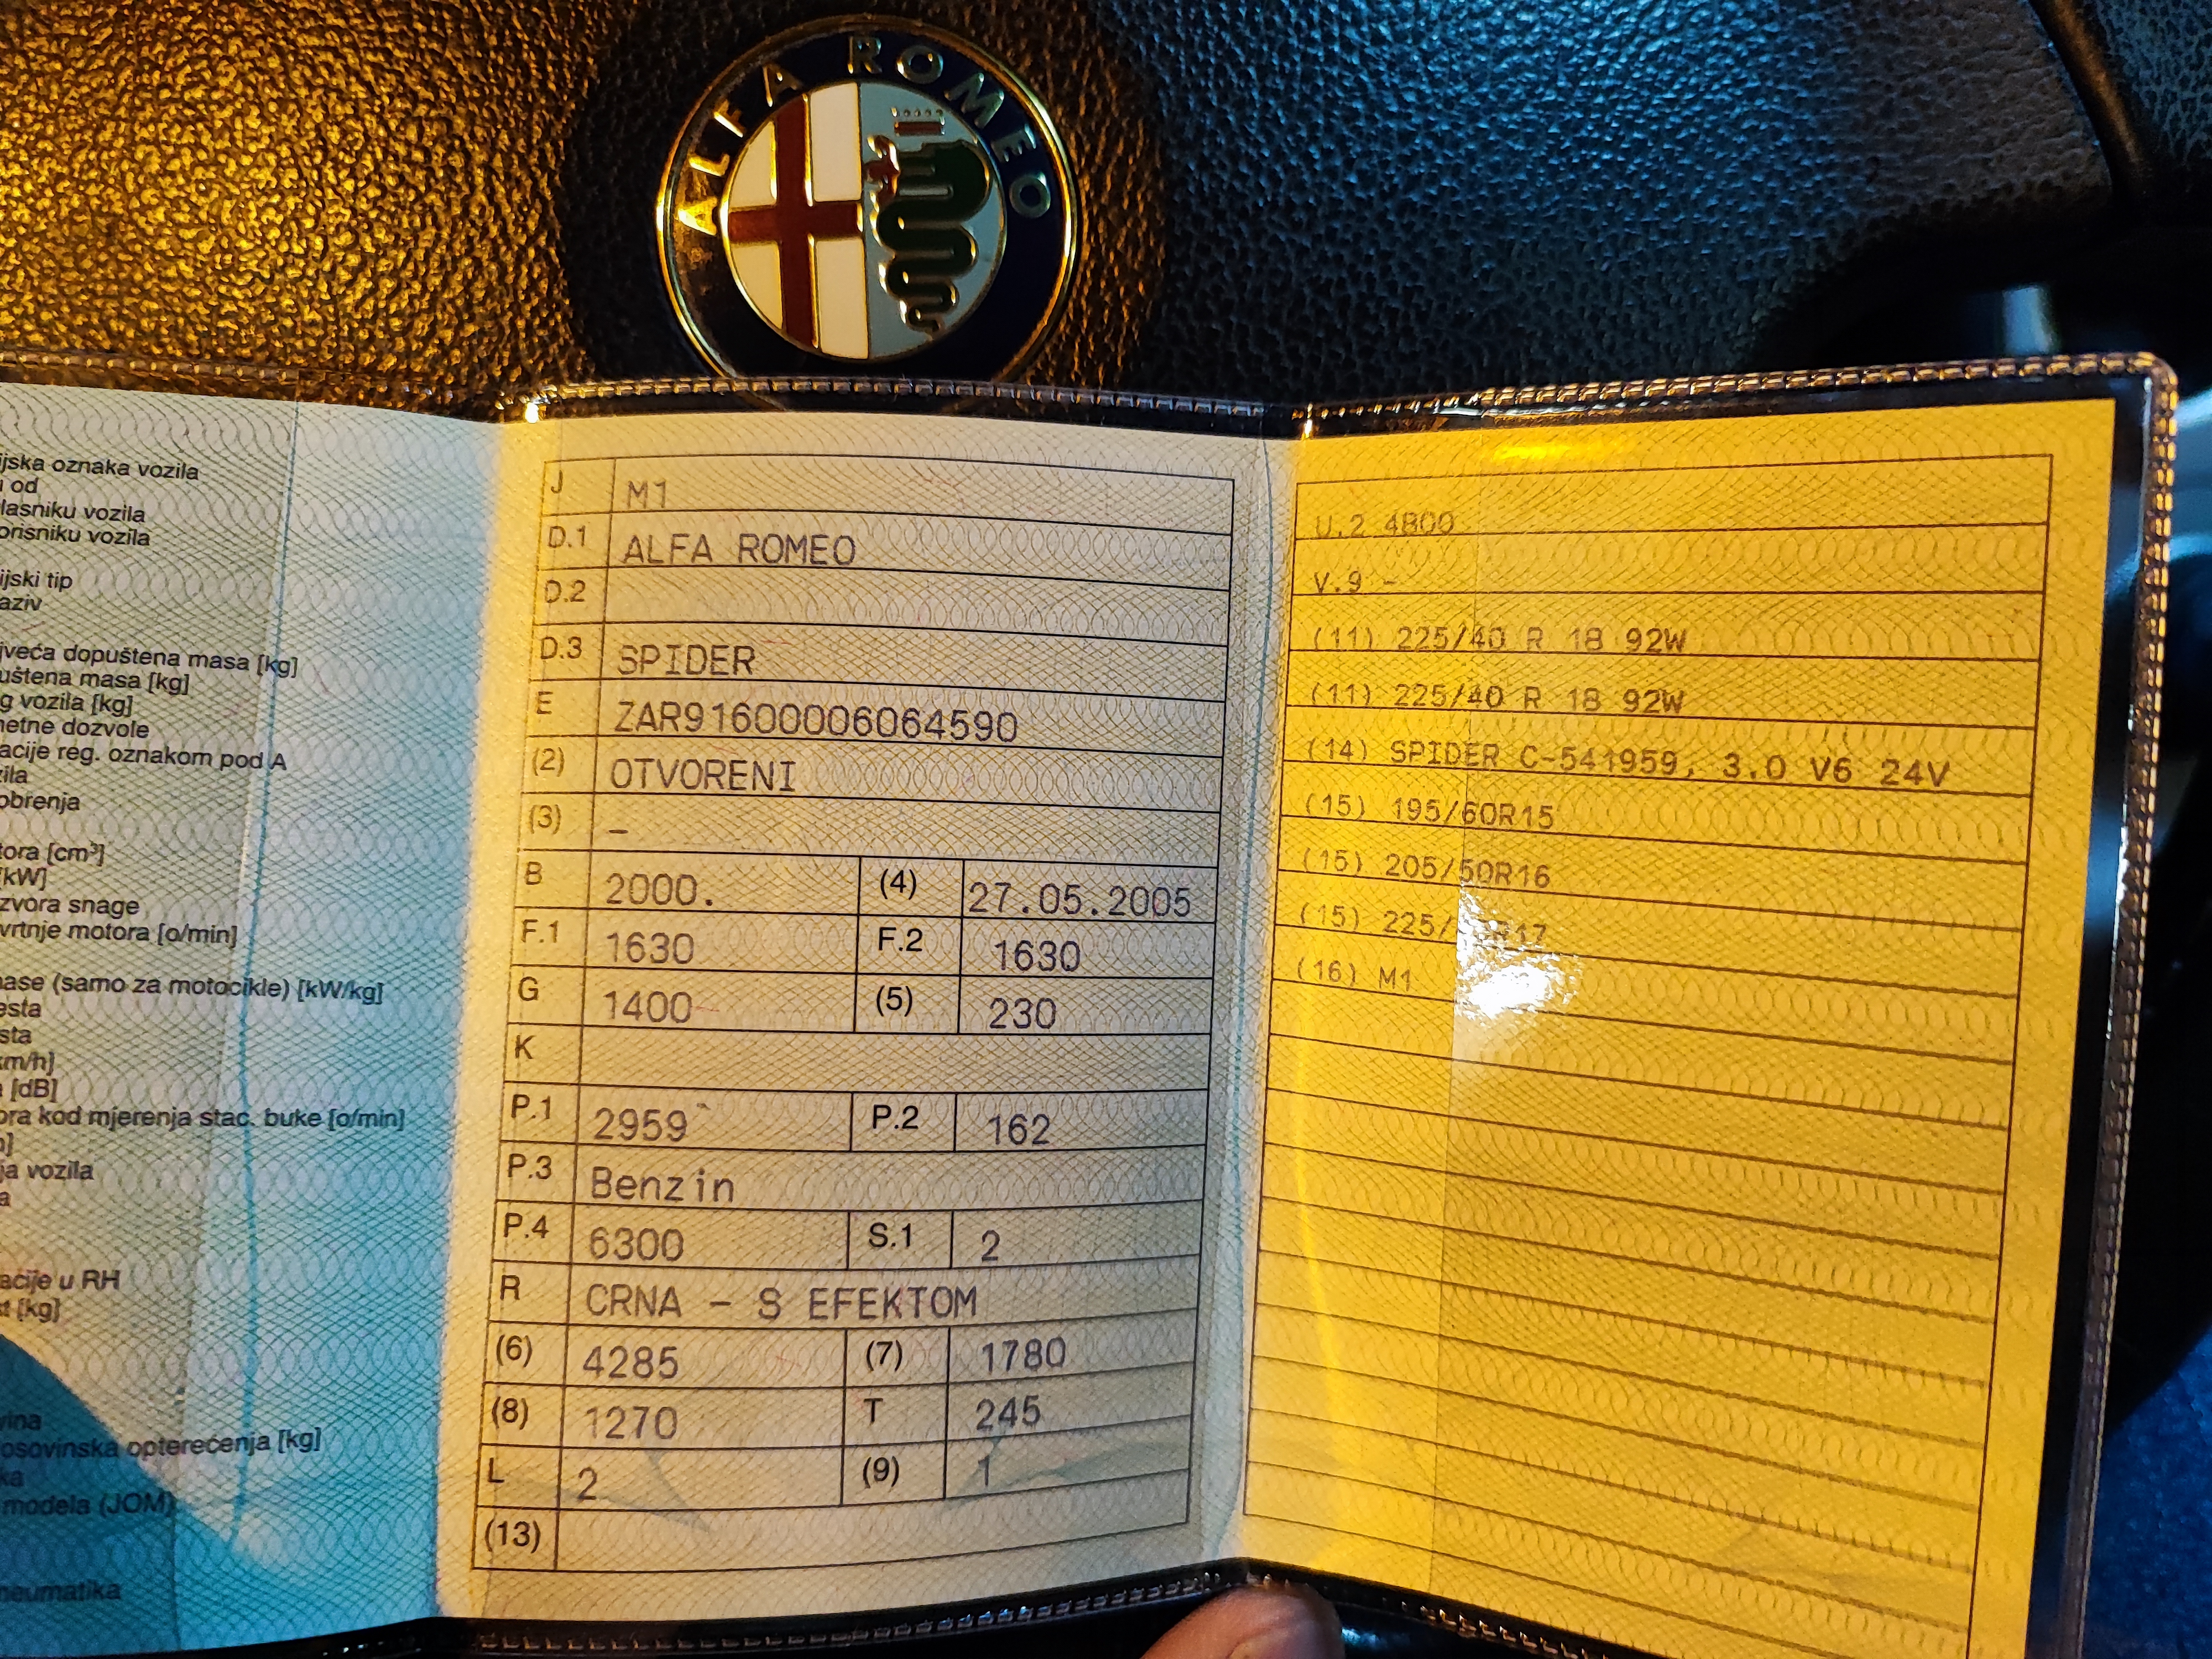 ALFA ROMEO
ijska oznaka vozila
od
lasniku vozila
orisniku vozila
ijski tip
aziv
jveća dopuštena masa [kg]
uštena masa [kg]
g vozila [kg]
netne dozvole
acije reg. oznakom pod A
zila
obrenja
tora [cm³]
[kW]
zvora snage
vrtnje motora [o/min]
nase (samo za motocikle) [kW/kg]
esta
sta
km/h]
[dB]
ora kod mjerenja stac. buke [o/min]
ja vozila
a
acije u RH
st [kg]
vina
osovinska opterećenja [kg]
ka
modela (JOM)
neumatika
J M1
D.1 ALFA ROMEO
D.2
D.3 SPIDER
E ZAR91600006064590
(2) OTVORENI
(3) –
B 2000. (4) 27.05.2005
F.1 1630 F.2 1630
G 1400 (5) 230
K
P.1 2959 P.2 162
P.3 Benzin
P.4 6300 S.1 2
R CRNA – S EFEKTOM
(6) 4285 (7) 1780
(8) 1270 T 245
L 2 (9) 1
(13)
U.2 4800
V.9 –
(11) 225/40 R 18 92W
(11) 225/40 R 18 92W
(14) SPIDER C-541959, 3.0 V6 24V
(15) 195/60R15
(15) 205/50R16
(15) 225/ R17
(16) M1